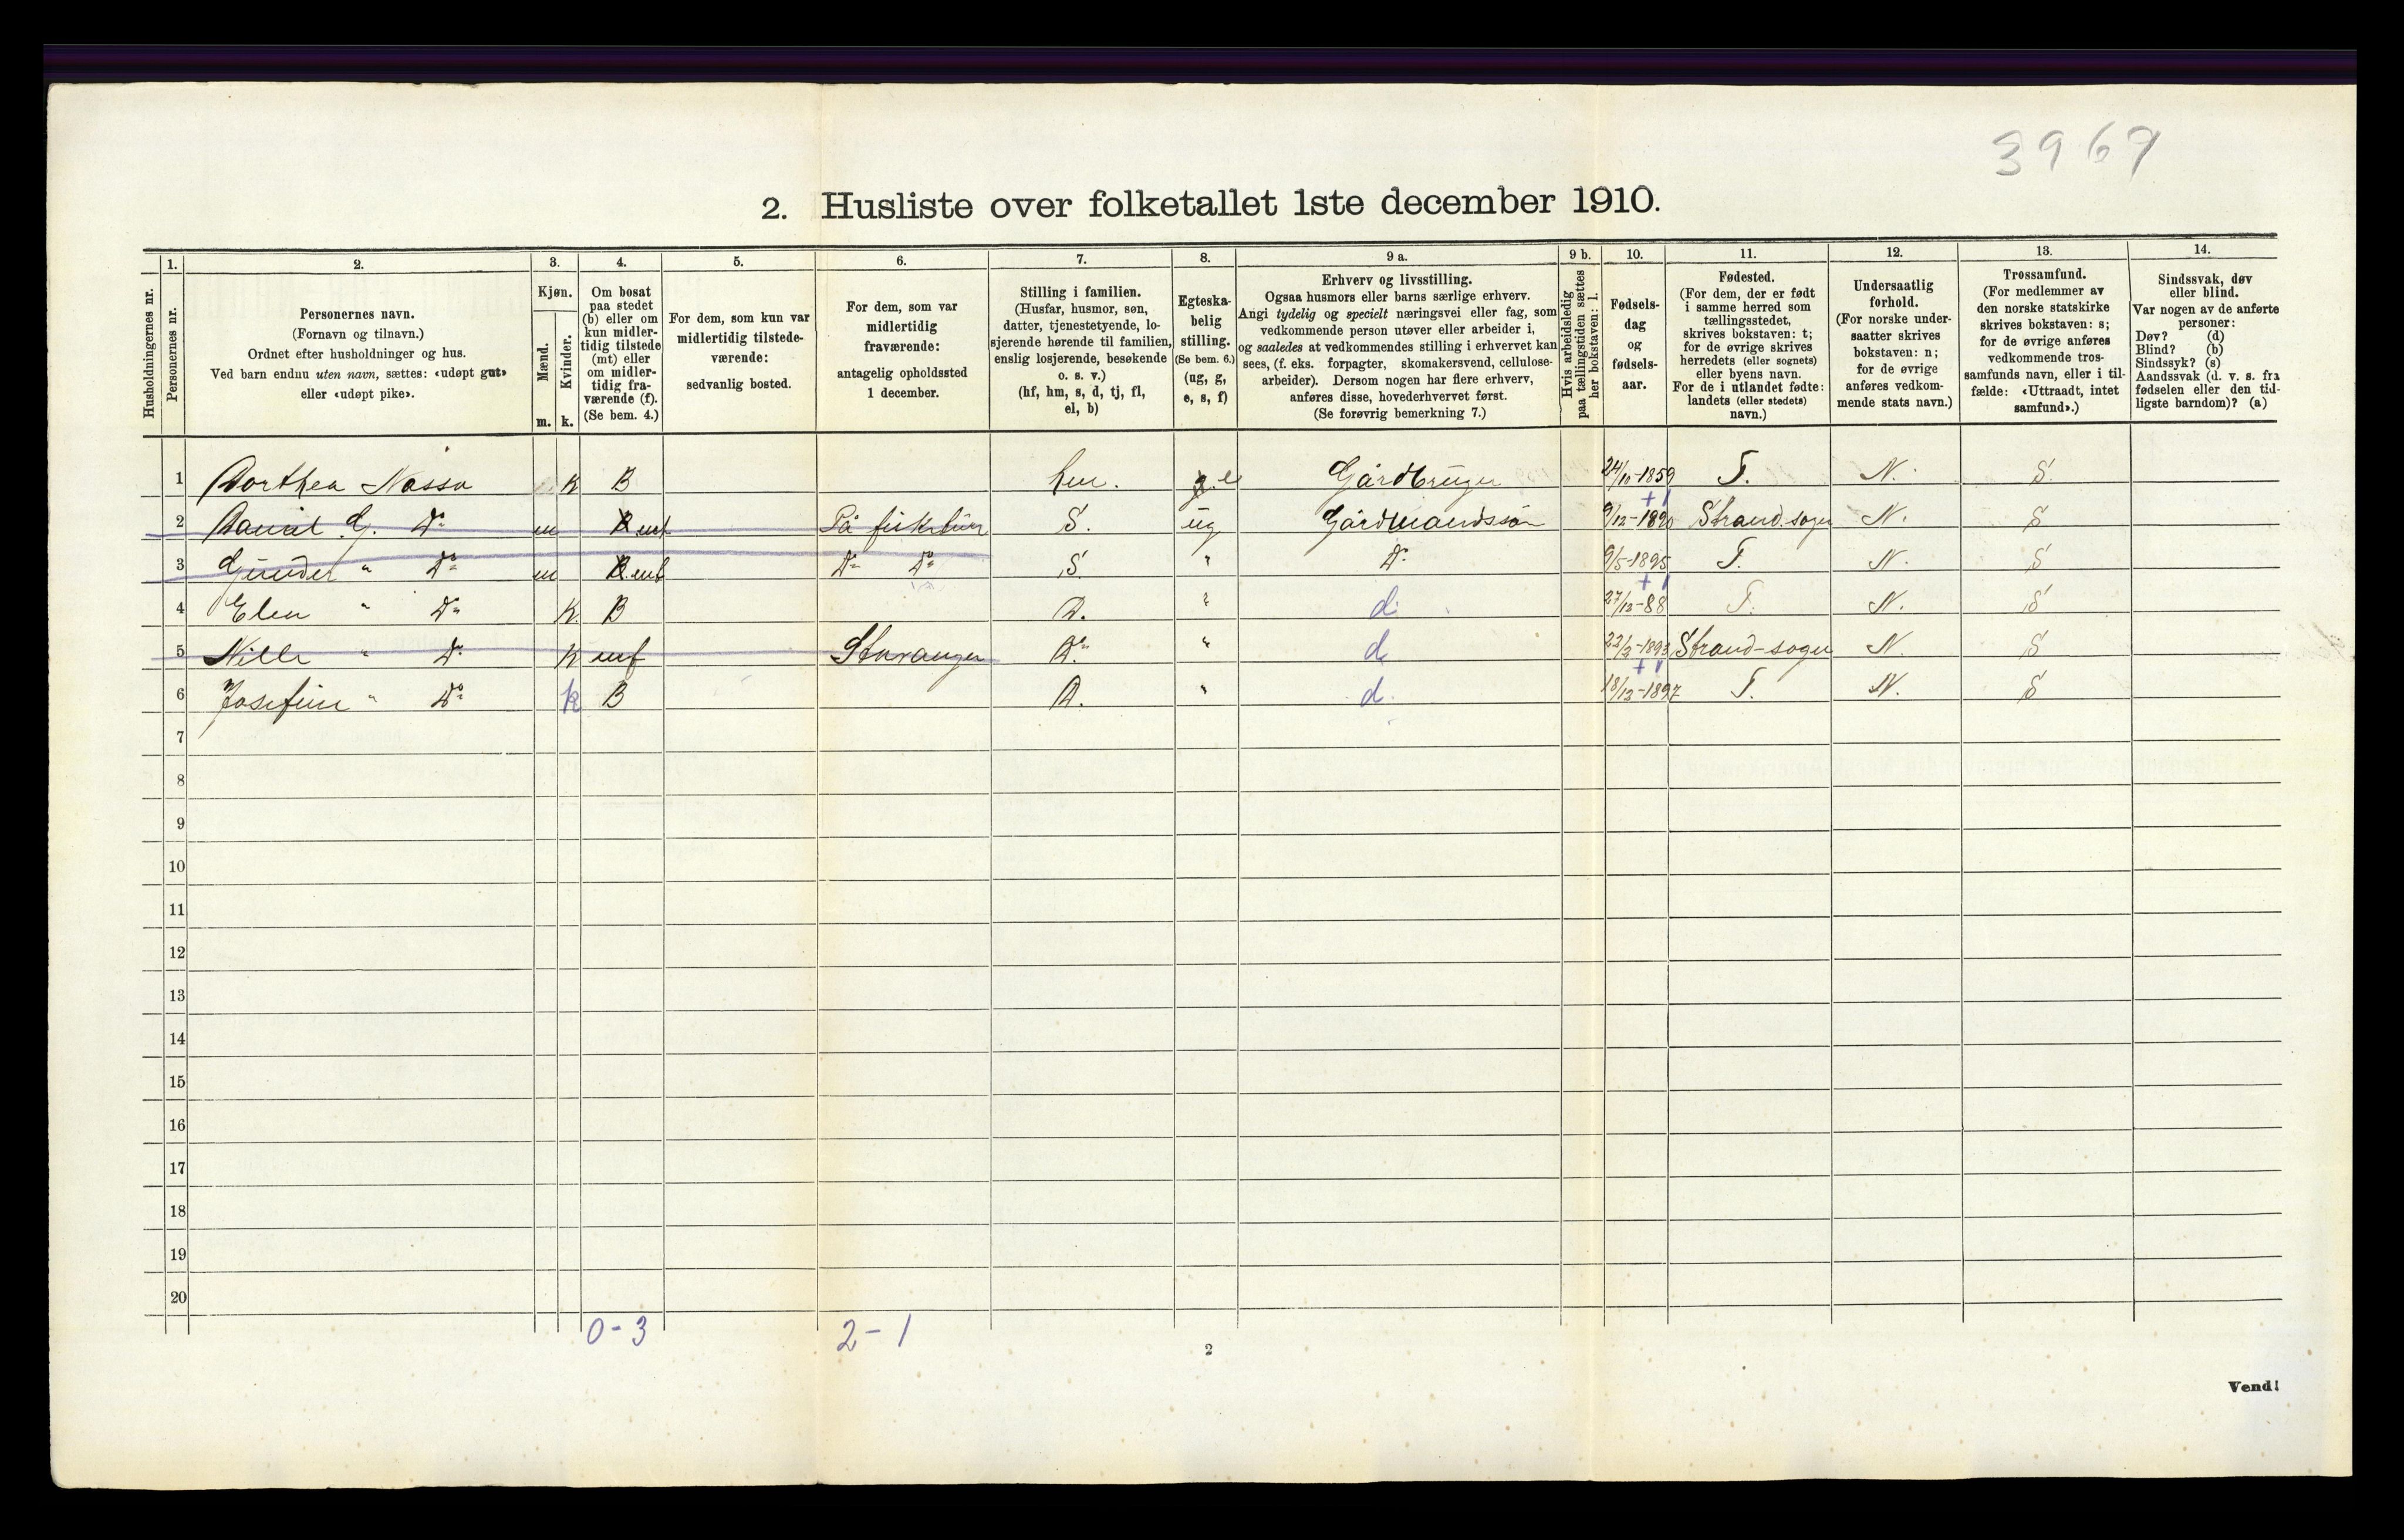 3967
2. Husliste over folketallet 1ste december 1910.
Husholdningernes nr.
1. Personernes nr.
2. Personernes navn.
(Fornavn og tilnavn.)
Ordnet efter husholdninger og hus.
Ved barn endnu uten navn, sættes: «udøpt gut»
eller «udøpt pike».
3. Kjøn.
Mænd. m.
Kvinder. k.
4. Om bosat
paa stedet
(b) eller om
kun midler-
tidig tilstede
(mt) eller
om midler-
tidig fra-
værende (f).
(Se bem. 4.)
5. For dem, som kun var
midlertidig tilstede-
værende:
sedvanlig bosted.
6. For dem, som var
midlertidig
fraværende:
antagelig opholdssted
1 december.
7. Stilling i familien.
(Husfar, husmor, søn,
datter, tjenestetyende, lo-
sjerende hørende til familien,
enslig losjerende, besøkende
o. s. v.)
(hf, hm, s, d, tj, fl,
el, b)
8. Egteska-
belig
stilling.
(Se bem. 6.)
(ug, g,
e, s, f)
9 a. Erhverv og livsstilling.
Ogsaa husmors eller barns særlige erhverv.
Angi tydelig og specielt næringsvei eller fag, som
vedkommende person utøver eller arbeider i,
og saaledes at vedkommendes stilling i erhvervet kan
sees, (f. eks. forpagter, skomakersvend, cellulose-
arbeider). Dersom nogen har flere erhverv,
anføres disse, hovederhvervet først.
(Se forøvrig bemerkning 7.)
9 b. Hvis arbeidsledig
paa tællingstiden sættes
her bokstaven: l.
10. Fødsels-
dag
og
fødsels-
aar.
11. Fødested.
(For dem, der er født
i samme herred som
tællingsstedet,
skrives bokstaven: t;
for de øvrige skrives
herredets (eller sognets)
eller byens navn.
For de i utlandet fødte:
landets (eller stedets)
navn.)
12. Undersaatlig
forhold.
(For norske under-
saatter skrives
bokstaven: n;
for de øvrige
anføres vedkom-
mende stats navn.)
13. Trossamfund.
(For medlemmer av
den norske statskirke
skrives bokstaven: s;
for de øvrige anføres
vedkommende tros-
samfunds navn, eller i til-
fælde: «Uttraadt, intet
samfund».)
14. Sindssvak, døv
eller blind.
Var nogen av de anførte
personer:
Døv? (d)
Blind? (b)
Sindssyk? (s)
Aandssvak (d. v. s. fra
fødselen eller den tid-
ligste barndom)? (a)
1 Dorthea Nassa K B hm. g. e Gårdbruger 24/10-1859 T. N. S.
2 Daniel G. Do m B mf På fisketur S. ug Gårdmandssøn 9/12-1890 + 1 Strand sogn N. S
3 Gunder " Do m B. mf Do Do S. " Do 9/5-1895 T. N. S
4 Elen " Do K. B D. " d. 27/12-88 + 1 T. N. S
5 Nille " Do K mf Stavanger D. " d. 22/2-1893 Strand-sogn N. S
6 Josefine " Do k B D. " d. 18/12-1897 + 1 T. N. S
7
8
9
10
11
12
13
14
15
16
17
18
19
20
0-3 2-1
2
Vend!